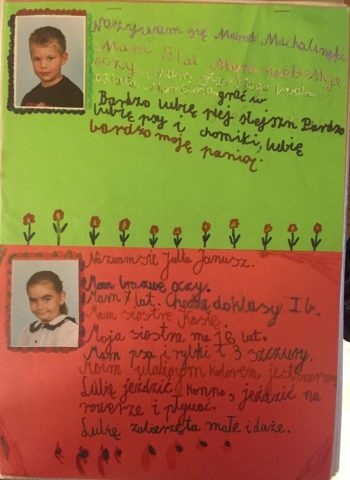 Nazywam się
Mam 8 lat. Mam niebieskie
oczy
grać w
Bardzo lubię plej stejszn Bardzo
lubię psy i chomiki, lubię
bardzo moją panią.
Nazwam sie Julia Janusz.
Mam brązwe oczy.
Mam 7 lat. Chodzę do klasy I b.
Mam siostrę Kasię.
Moja siostra ma 16 lat.
Mam psa i rybki i 3 szczury.
Moim ulubionym kolorem jest
Lubię jeździć konno, jeździć na
rowerze i pływać.
Lubię zwierzęta małe i duże.